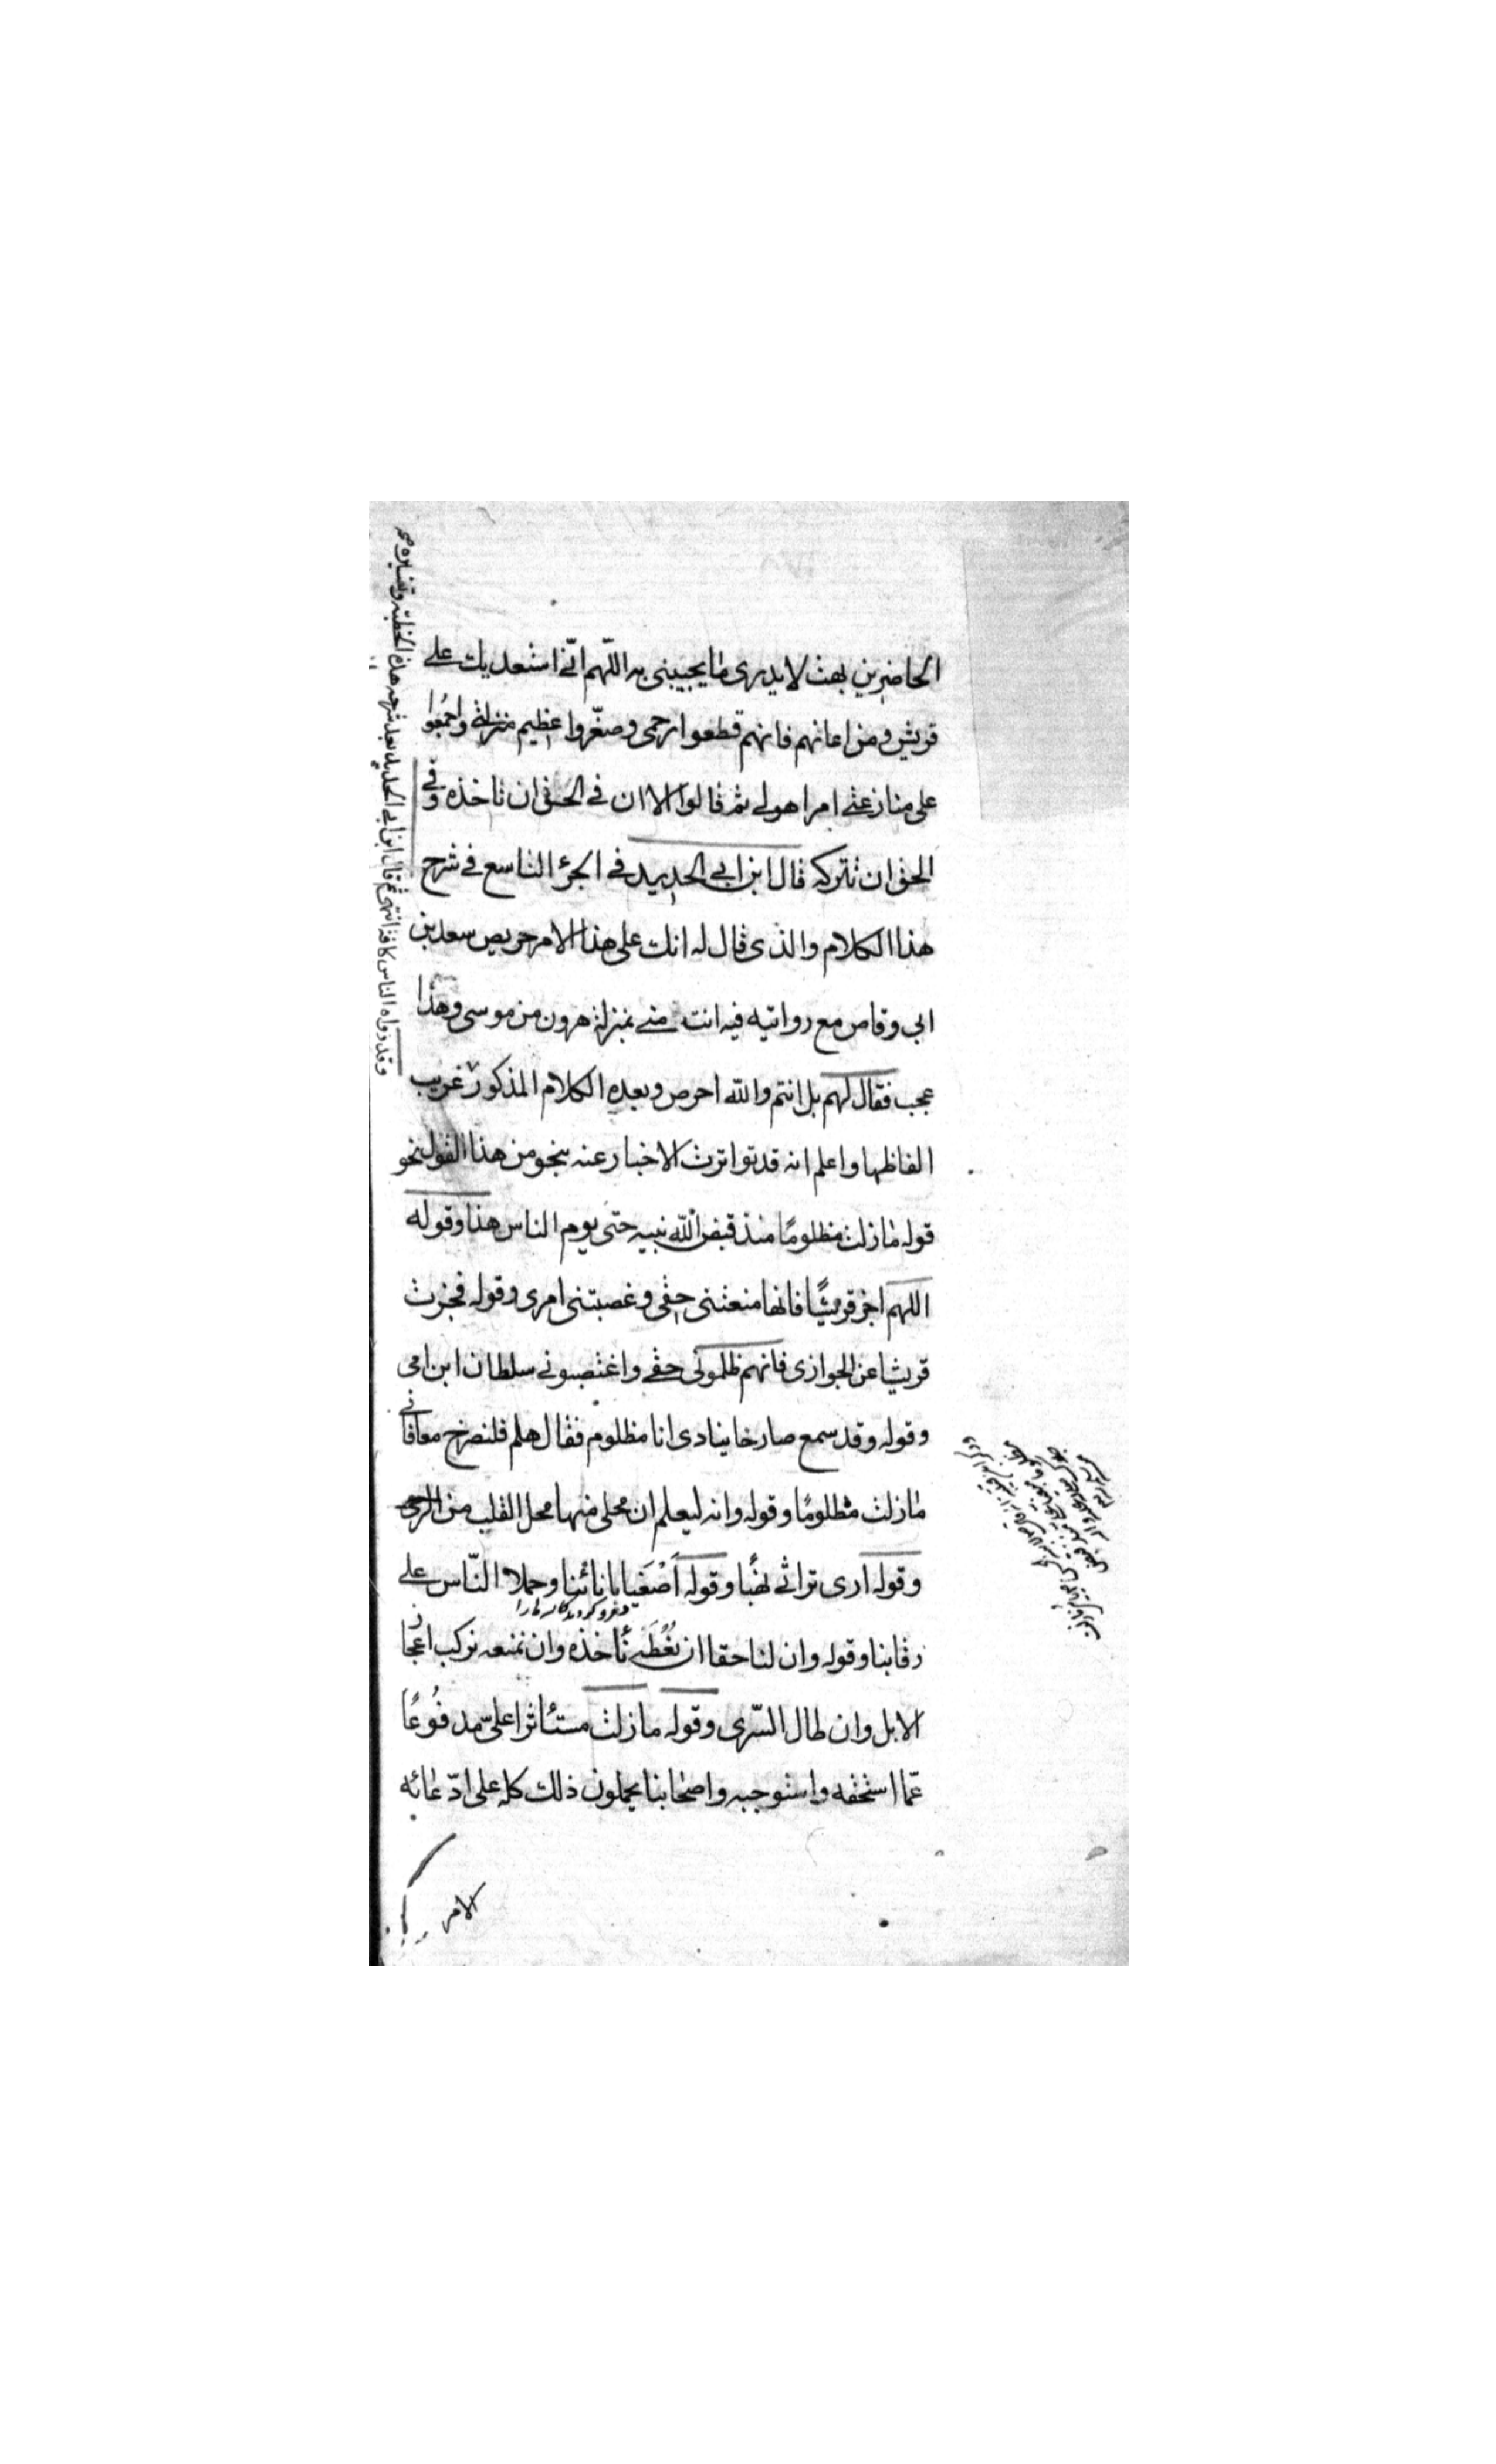 الحاضرين بهت لا يدرى ما يجيبنى به اللّهم انّى استعديك على
قريش و من اعانهم فانهم قطعوا رحمى و صغّروا عظيم منزلتى و اجمعوا
على منازعتى امرا هو لى ثم قالوا الا ان فى الحق ان تاخذه و فى
الحق ان تتركه قال ابن ابى الحديد فى الجزء التاسع فى شرح
هذا الكلام والذى قال له انك على هذا الامر حريص سعد بن
ابى وقاص مع روايته فيه انت منى بمنزلة هرون من موسى و هذا
عجب فقال لهم بل انتم والله احرص و بعده الكلام المذكور غريب
الفاظها و اعلم انه قد تواترت الاخبار عنه بنحو من هذا القول نحو
قوله ما زلت مظلومًا منذ قبض الله نبيه حتى يوم الناس هذا و قوله
اللهم اجز قريشًا فانها منعتنى حقى و غصبتنى امرى و قوله فجزت
قريشا عن الجوازى فانهم ظلمونى حقى و اغتصبونى سلطان ابن امى
و قوله و قد سمع صارخا ينادى انا مظلوم فقال هلم فلنصرخ معا فانى
ما زلت مظلومًا و قوله و انه ليعلم ان محلى منها محل القلب من الرحى
و قوله ارى تراثى نهبًا و قوله اَصْغَيا بانائنا و حملا النّاس على
رقابنا و قوله و ان لنا حقا ان نُعْطَه نأخذه و ان نمنعه نركب اعجاز
الابل و ان طال السّرى و قوله ما زلت مستأثرا علىّ مدفُوعًا
عمّا استحقه و استوجبه و اصحابنا يحملون ذلك كله على ادّعائه
الامر
و قد رواه الناس كافة انتهى ثم قال ابن ابى الحديد بعد شرحه هذه الخطبة و تفسيره صح